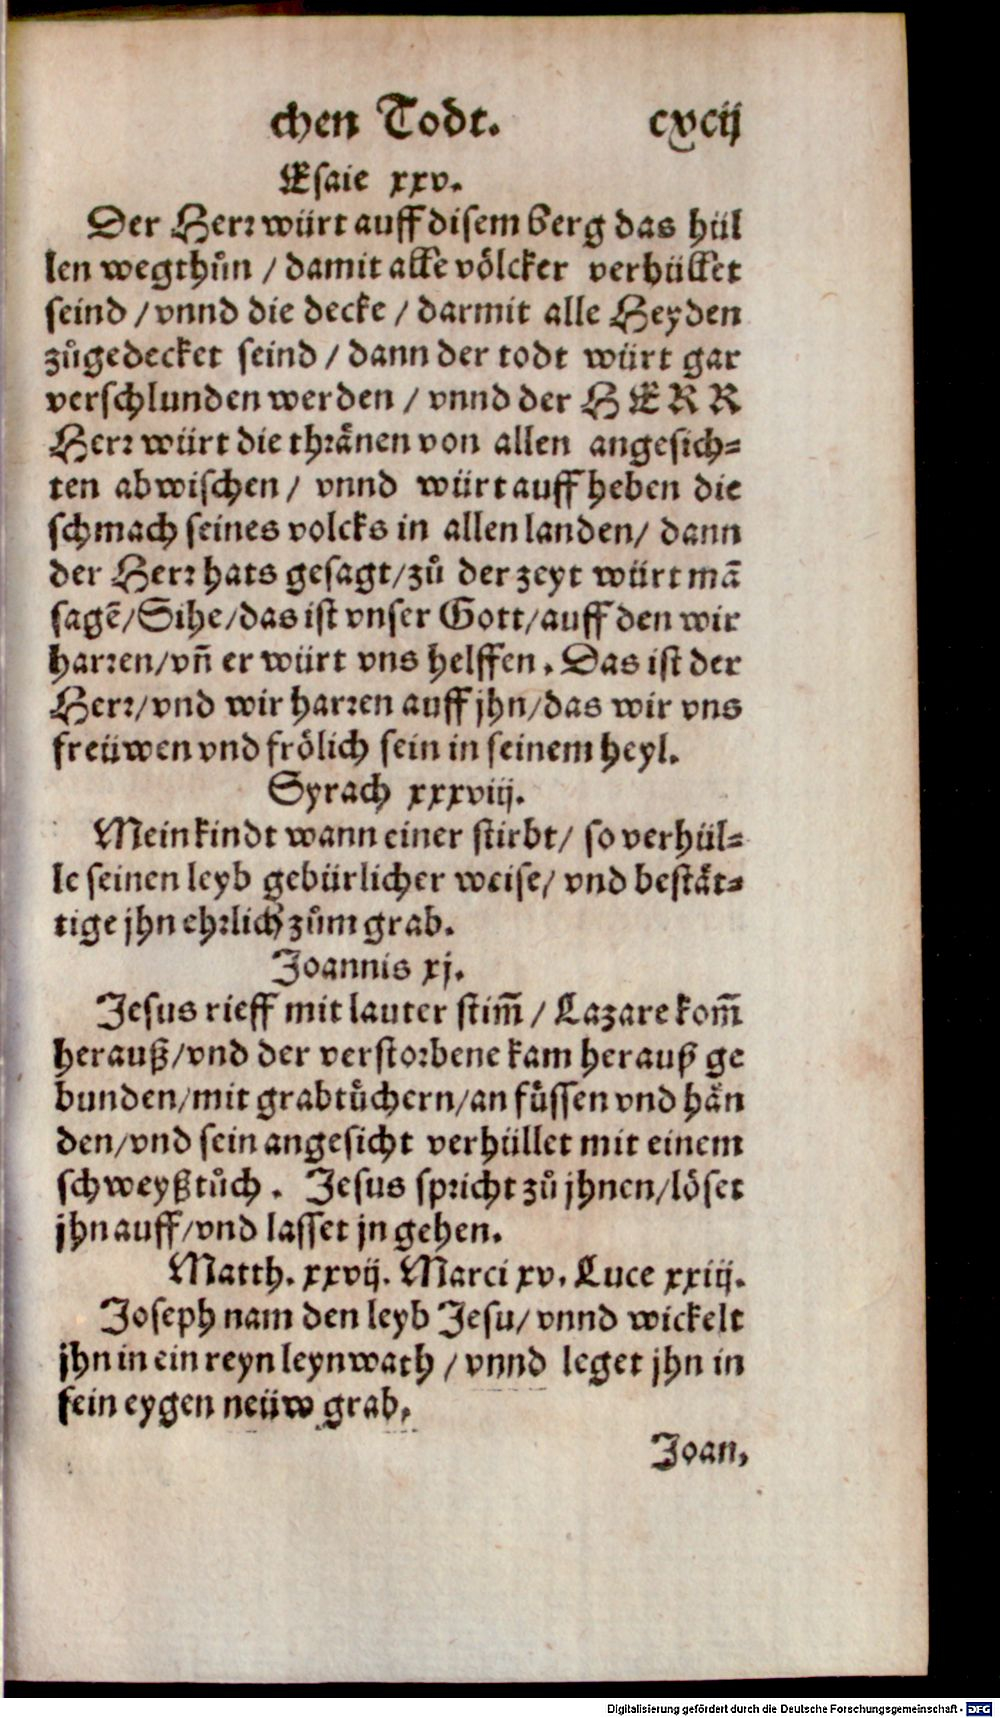 chen Todt. cxcij
Esaie xxv.
Der Herr würt auff disem berg das hül
len wegthůn / damit alle völcker verhüllet
seind / vnnd die decke / darmit alle Heyden
zůgedecket seind / dann der todt würt gar
verschlunden werden / vnnd der HERR
Herr würt die thränen von allen angesich⸗
ten abwischen / vnnd würt auff heben die
schmach seines volcks in allen landen / dann
der Herr hats gesagt / zů der zeyt würt mā
sagē / Sihe / das ist vnser Gott / auff den wir
harren / vn̄ er würt vns helffen. Das ist der
Herr / vnd wir harren auff jhn / das wir vns
freüwen vnd frölich sein in seinem heyl.
Syrach xxxviij.
Mein kindt wann einer stirbt / so verhül⸗
le seinen leyb gebürlicher weise / vnd bestät⸗
tige jhn ehrlich zům grab.
Joannis xj.
Jesus rieff mit lauter stim̄ / Lazare kom̄
herauß / vnd der verstorbene kam herauß ge
bunden / mit grabtůchern / an fůssen vnd hän
den / vnd sein angesicht verhüllet mit einem
schweyßtůch. Jesus spricht zů jhnen / löset
jhn auff / vnd lasset jn gehen.
Matth. xxvij. Marci xv. Luce xxiij.
Joseph nam den leyb Jesu / vnnd wickelt
jhn in ein reyn leynwath / vnnd leget jhn in
sein eygen neüw grab.
Joan.
Digitalisierung gefördert durch die Deutsche Forschungsgemeinschaft - DFG